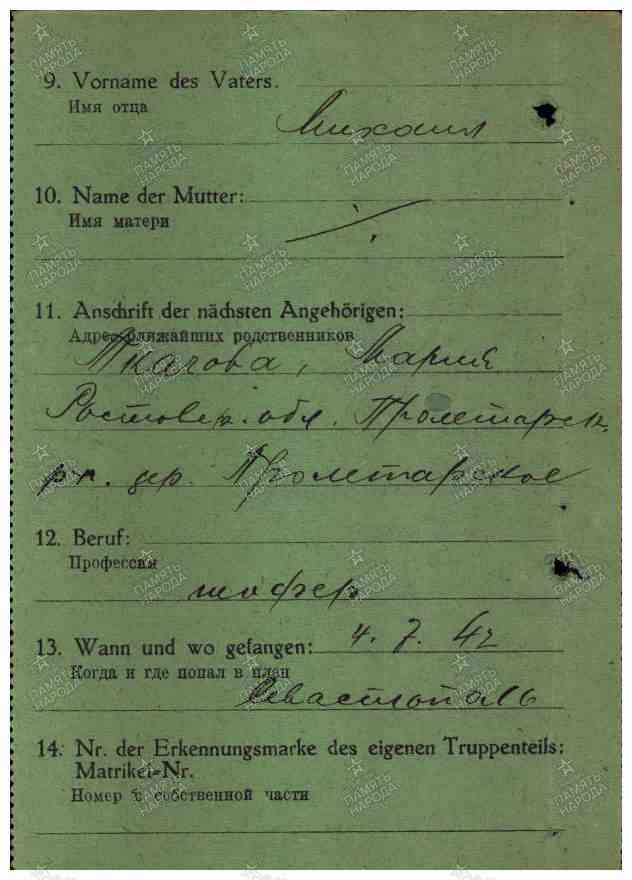 9. Vorname des Vaters.
Имя отца
Михаил
10. Name der Mutter:
Имя матери
11. Anschrift der nächsten Angehörigen:
Адрес ближайших родственников
Ткачова, Мария
Ростовск. обл. Пролетарск.
рн. дер. Пролетарское
12. Beruf:
Профессия
шофер
13. Wann und wo gefangen: 4. 7. 42
Когда и где попал в плен
Севастополь
14. Nr. der Erkennungsmarke des eigenen Truppenteils:
Matrikel-Nr.
Номер с собственной части
ПАМЯТЬ НАРОДА